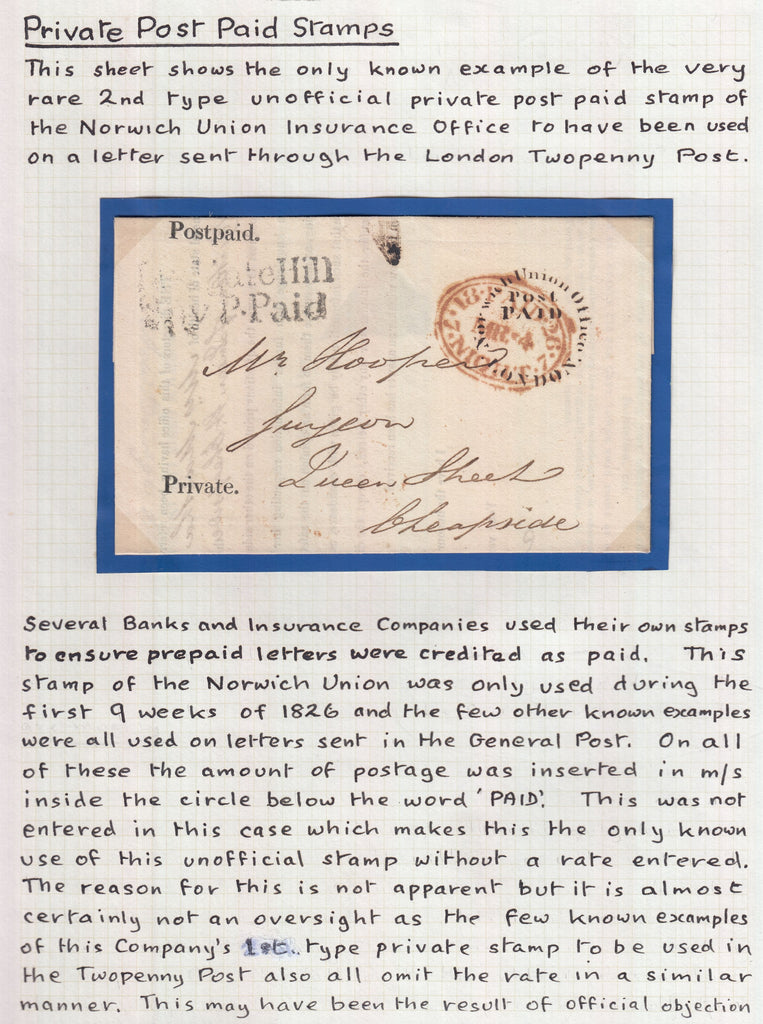 Private Post Paid Stamps
This sheet shows the only known example of the very
rare 2nd type unofficial private post paid stamp of
the Norwich Union Insurance Office to have been used
on a letter sent through the London Twopenny Post.
Postpaid.
Hill
P.Paid
Union Office.
Post
PAID
LONDON.
Mr Hooper
Surgeon
Queen Street
Private.
Cheapside
Several Banks and Insurance Companies used their own stamps
to ensure prepaid letters were credited as paid. This
stamp of the Norwich Union was only used during the
first 9 weeks of 1826 and the few other known examples
were all used on letters sent in the General Post. On all
of these the amount of postage was inserted in m/s
inside the circle below the word 'PAID'. This was not
entered in this case which makes this the only known
use of this unofficial stamp without a rate entered.
The reason for this is not apparent but it is almost
certainly not an oversight as the few known examples
of this Company's 1st. type private stamp to be used in
the Twopenny Post also all omit the rate in a similar
manner. This may have been the result of official objection